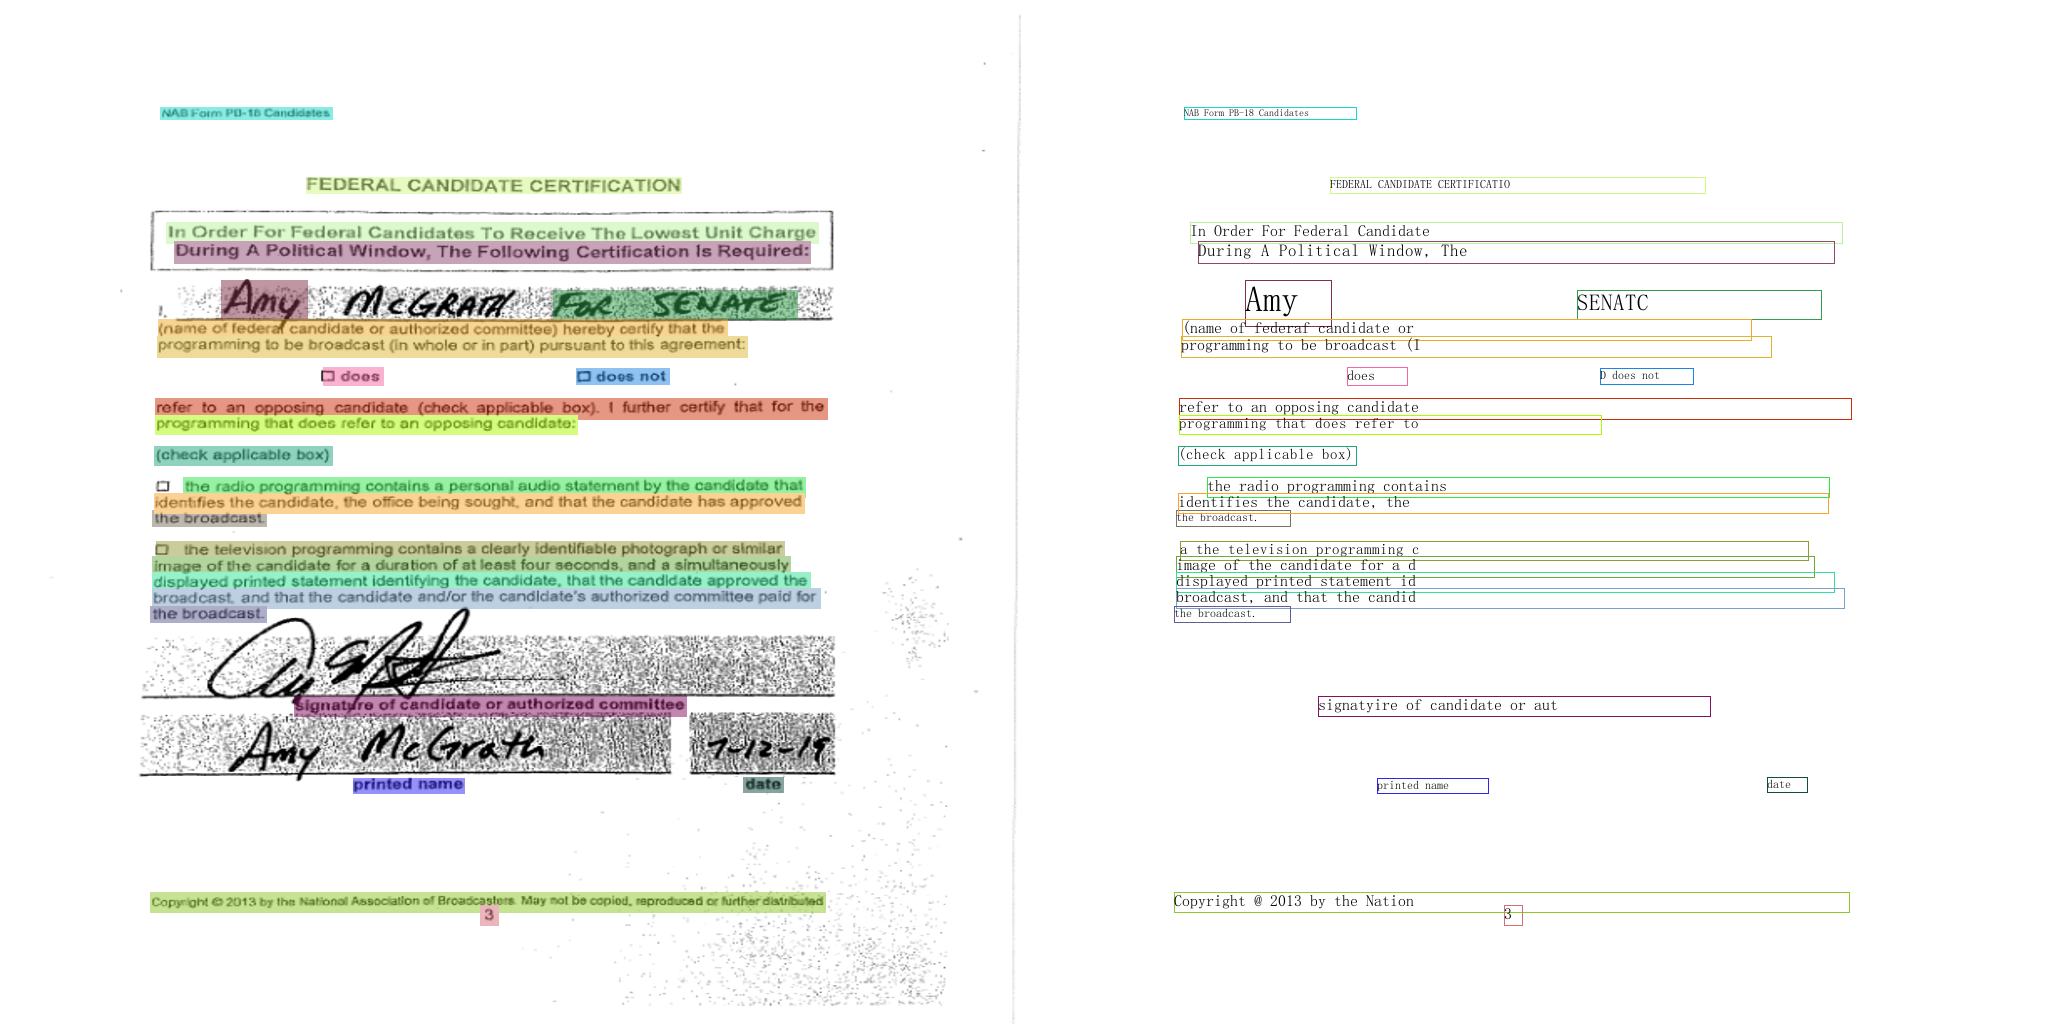 NAB Form PB-18 Candidates
FEDERAL CANDIDATE CERTIFICATION
In Order For Federal Candidates To Receive The Lowest Unit Charge
During A Political Window, The Following Certification Is Required:
I, Amy McGRATH FOR SENATE
(name of federal candidate or authorized committee) hereby certify that the
programming to be broadcast (in whole or in part) pursuant to this agreement:
☐ does ☐ does not
refer to an opposing candidate (check applicable box). I further certify that for the
programming that does refer to an opposing candidate:
(check applicable box)
☐ the radio programming contains a personal audio statement by the candidate that
identifies the candidate, the office being sought, and that the candidate has approved
the broadcast.
☐ the television programming contains a clearly identifiable photograph or similar
image of the candidate for a duration of at least four seconds, and a simultaneously
displayed printed statement identifying the candidate, that the candidate approved the
broadcast, and that the candidate and/or the candidate's authorized committee paid for
the broadcast.
signature of candidate or authorized committee
Amy McGrath 7-12-19
printed name date
Copyright © 2013 by the National Association of Broadcasters. May not be copied, reproduced or further distributed
3
NAB Form PB-18 Candidates
FEDERAL CANDIDATE CERTIFICATIO
In Order For Federal Candidate
During A Political Window, The
Amy SENATC
(name of federaf candidate or
programming to be broadcast (I
does D does not
refer to an opposing candidate
programming that does refer to
(check applicable box)
the radio programming contains
identifies the candidate, the
the broadcast.
a the television programming c
image of the candidate for a d
displayed printed statement id
broadcast, and that the candid
the broadcast.
signatyire of candidate or aut
printed name date
Copyright @ 2013 by the Nation
3